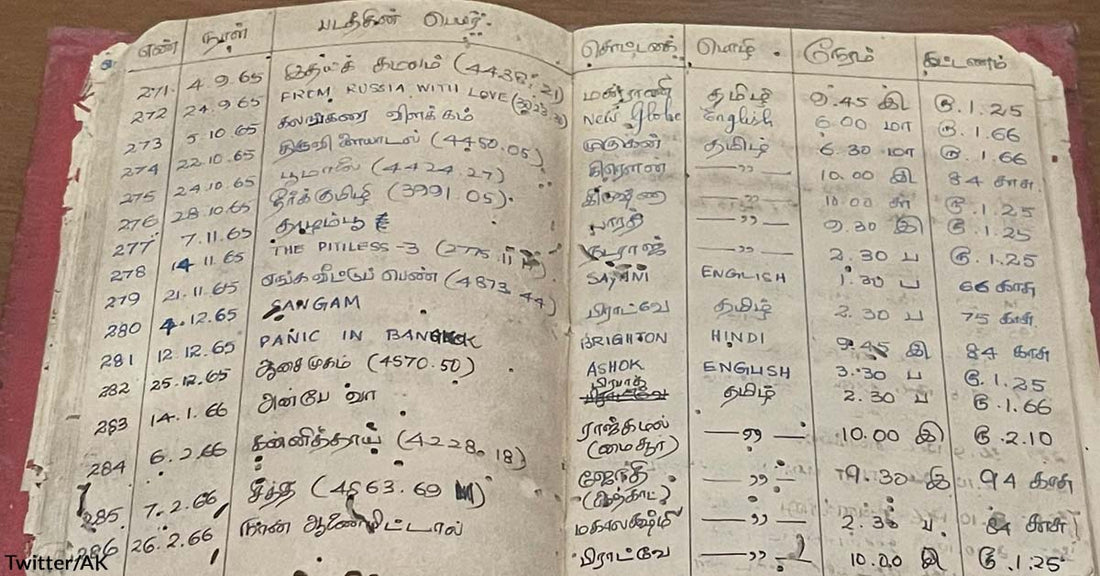 எண் நாள் படத்தின் பெயர். கொட்டகை மொழி . நேரம் கட்டணம்
271 4.9.65 இதயக் கமலம் (4438.21) மகாராணி தமிழ் 9.45 இ ரூ.1.25
272 24.9.65 FROM RUSSIA WITH LOVE New Globe English 6.00 மா ரூ.1.66
273 5.10.65 கலங்கரை விளக்கம் முருகன் தமிழ் 6.30 மா ரூ.1.66
274 22.10.65 திருவிளையாடல் (4450.05) கிரௌன் —"— 10.00 இ 84 காசு
275 24.10.65 பூமாலை (4424.27) கிருஷ்ணா —"— 10.00 ரூ.1.25
276 28.10.65 நீர்க்குமிழி (3991.05). பாரதி —"— 9.30 இ ரூ.1.25
277 7.11.65 தாழம்பூ நடராஜ் —"— 2.30 ப ரூ.1.25
278 14.11.65 THE PITILESS -3 SAYANI ENGLISH 1.30 ப 66 காசு
279 21.11.65 எங்க வீட்டுப் பெண் (4873.44) பிராட்வே தமிழ் 2.30 ப 75 காசு
280 4.12.65 SANGAM BRIGHTON HINDI 9.45 இ 84 காசு
281 12.12.65 PANIC IN BANGKOK ASHOK ENGLISH 3.30 ப ரூ.1.25
282 25.12.65 ஆசைமுகம் (4570.50) பிரபாத் தமிழ் 2.30 ப ரூ.1.66
283 14.1.66 அன்பே வா ராஜ்கமல் —"— 10.00 இ ரூ.2.10
(மைசூர்)
284 6.2.66 கன்னித்தாய் (4228.18) ஜெயந்தி —"— 9.30 இ 94 காசு
(ஆற்காட்)
285 7.2.66 சித்தி (4863.69) மகாலக்ஷ்மி —"— 2.30 ப 84 காசு
286 26.2.66 நான் ஆணையிட்டால் பிராட்வே —"— 10.00 இ ரூ.1.25
Twitter/AK